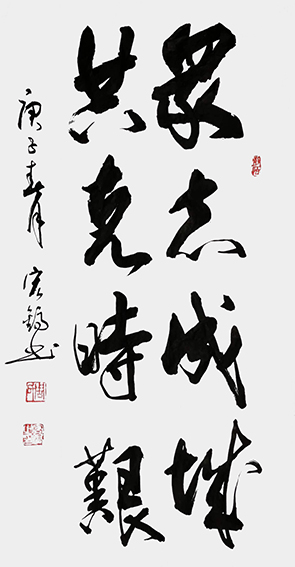 眾志成城
共克時艱
庚子春月 宏鎬书